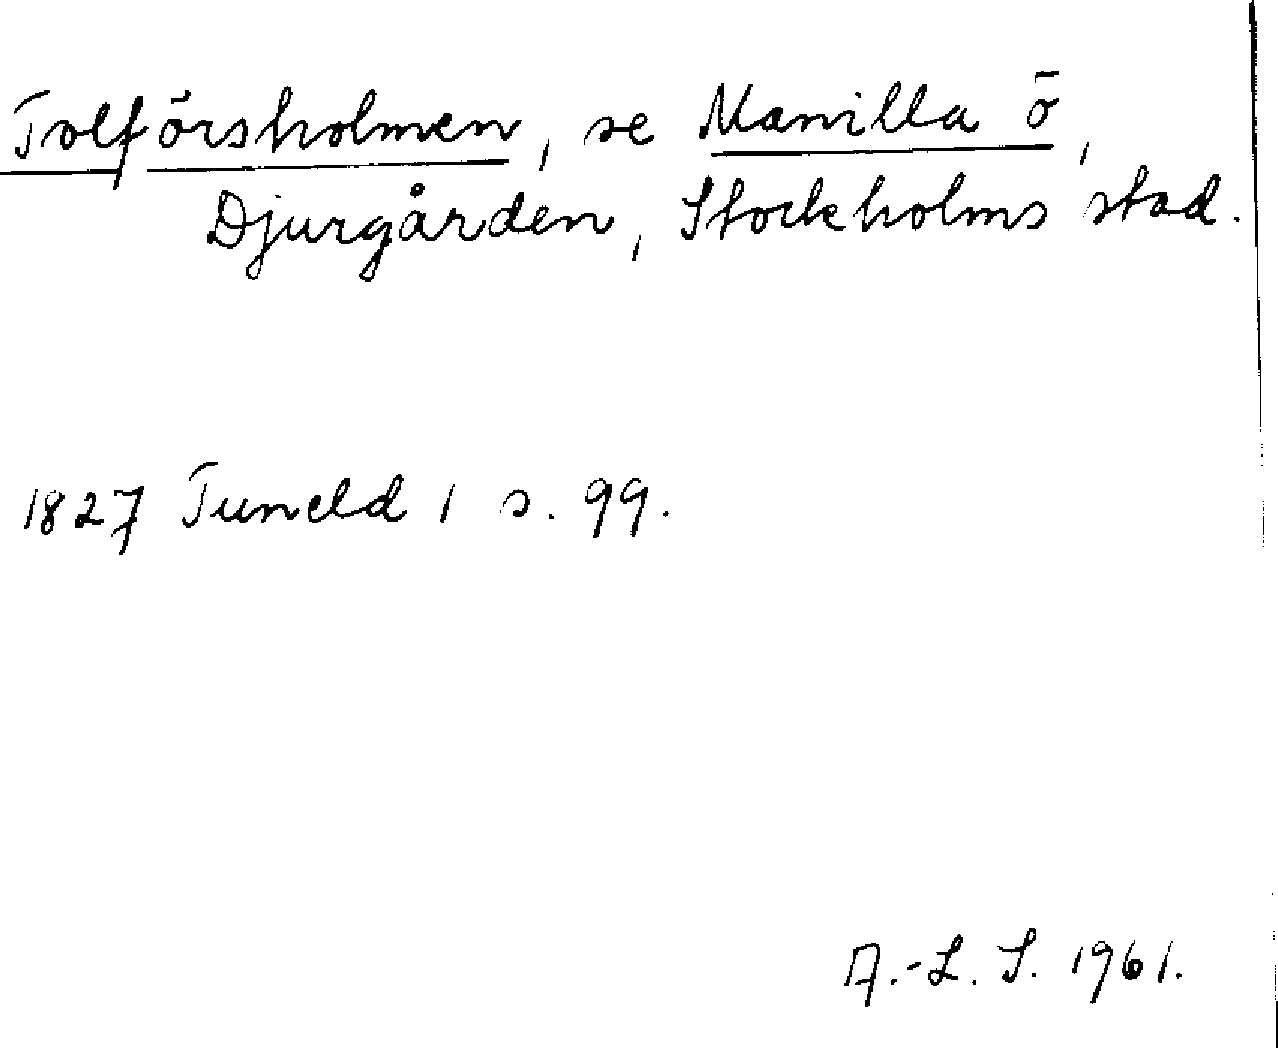 Tolförsholmen, se Manilla ö,
Djurgården, Stockholms stad.
1827 Tuneld 1 s. 99.
A.-L. S. 1961.